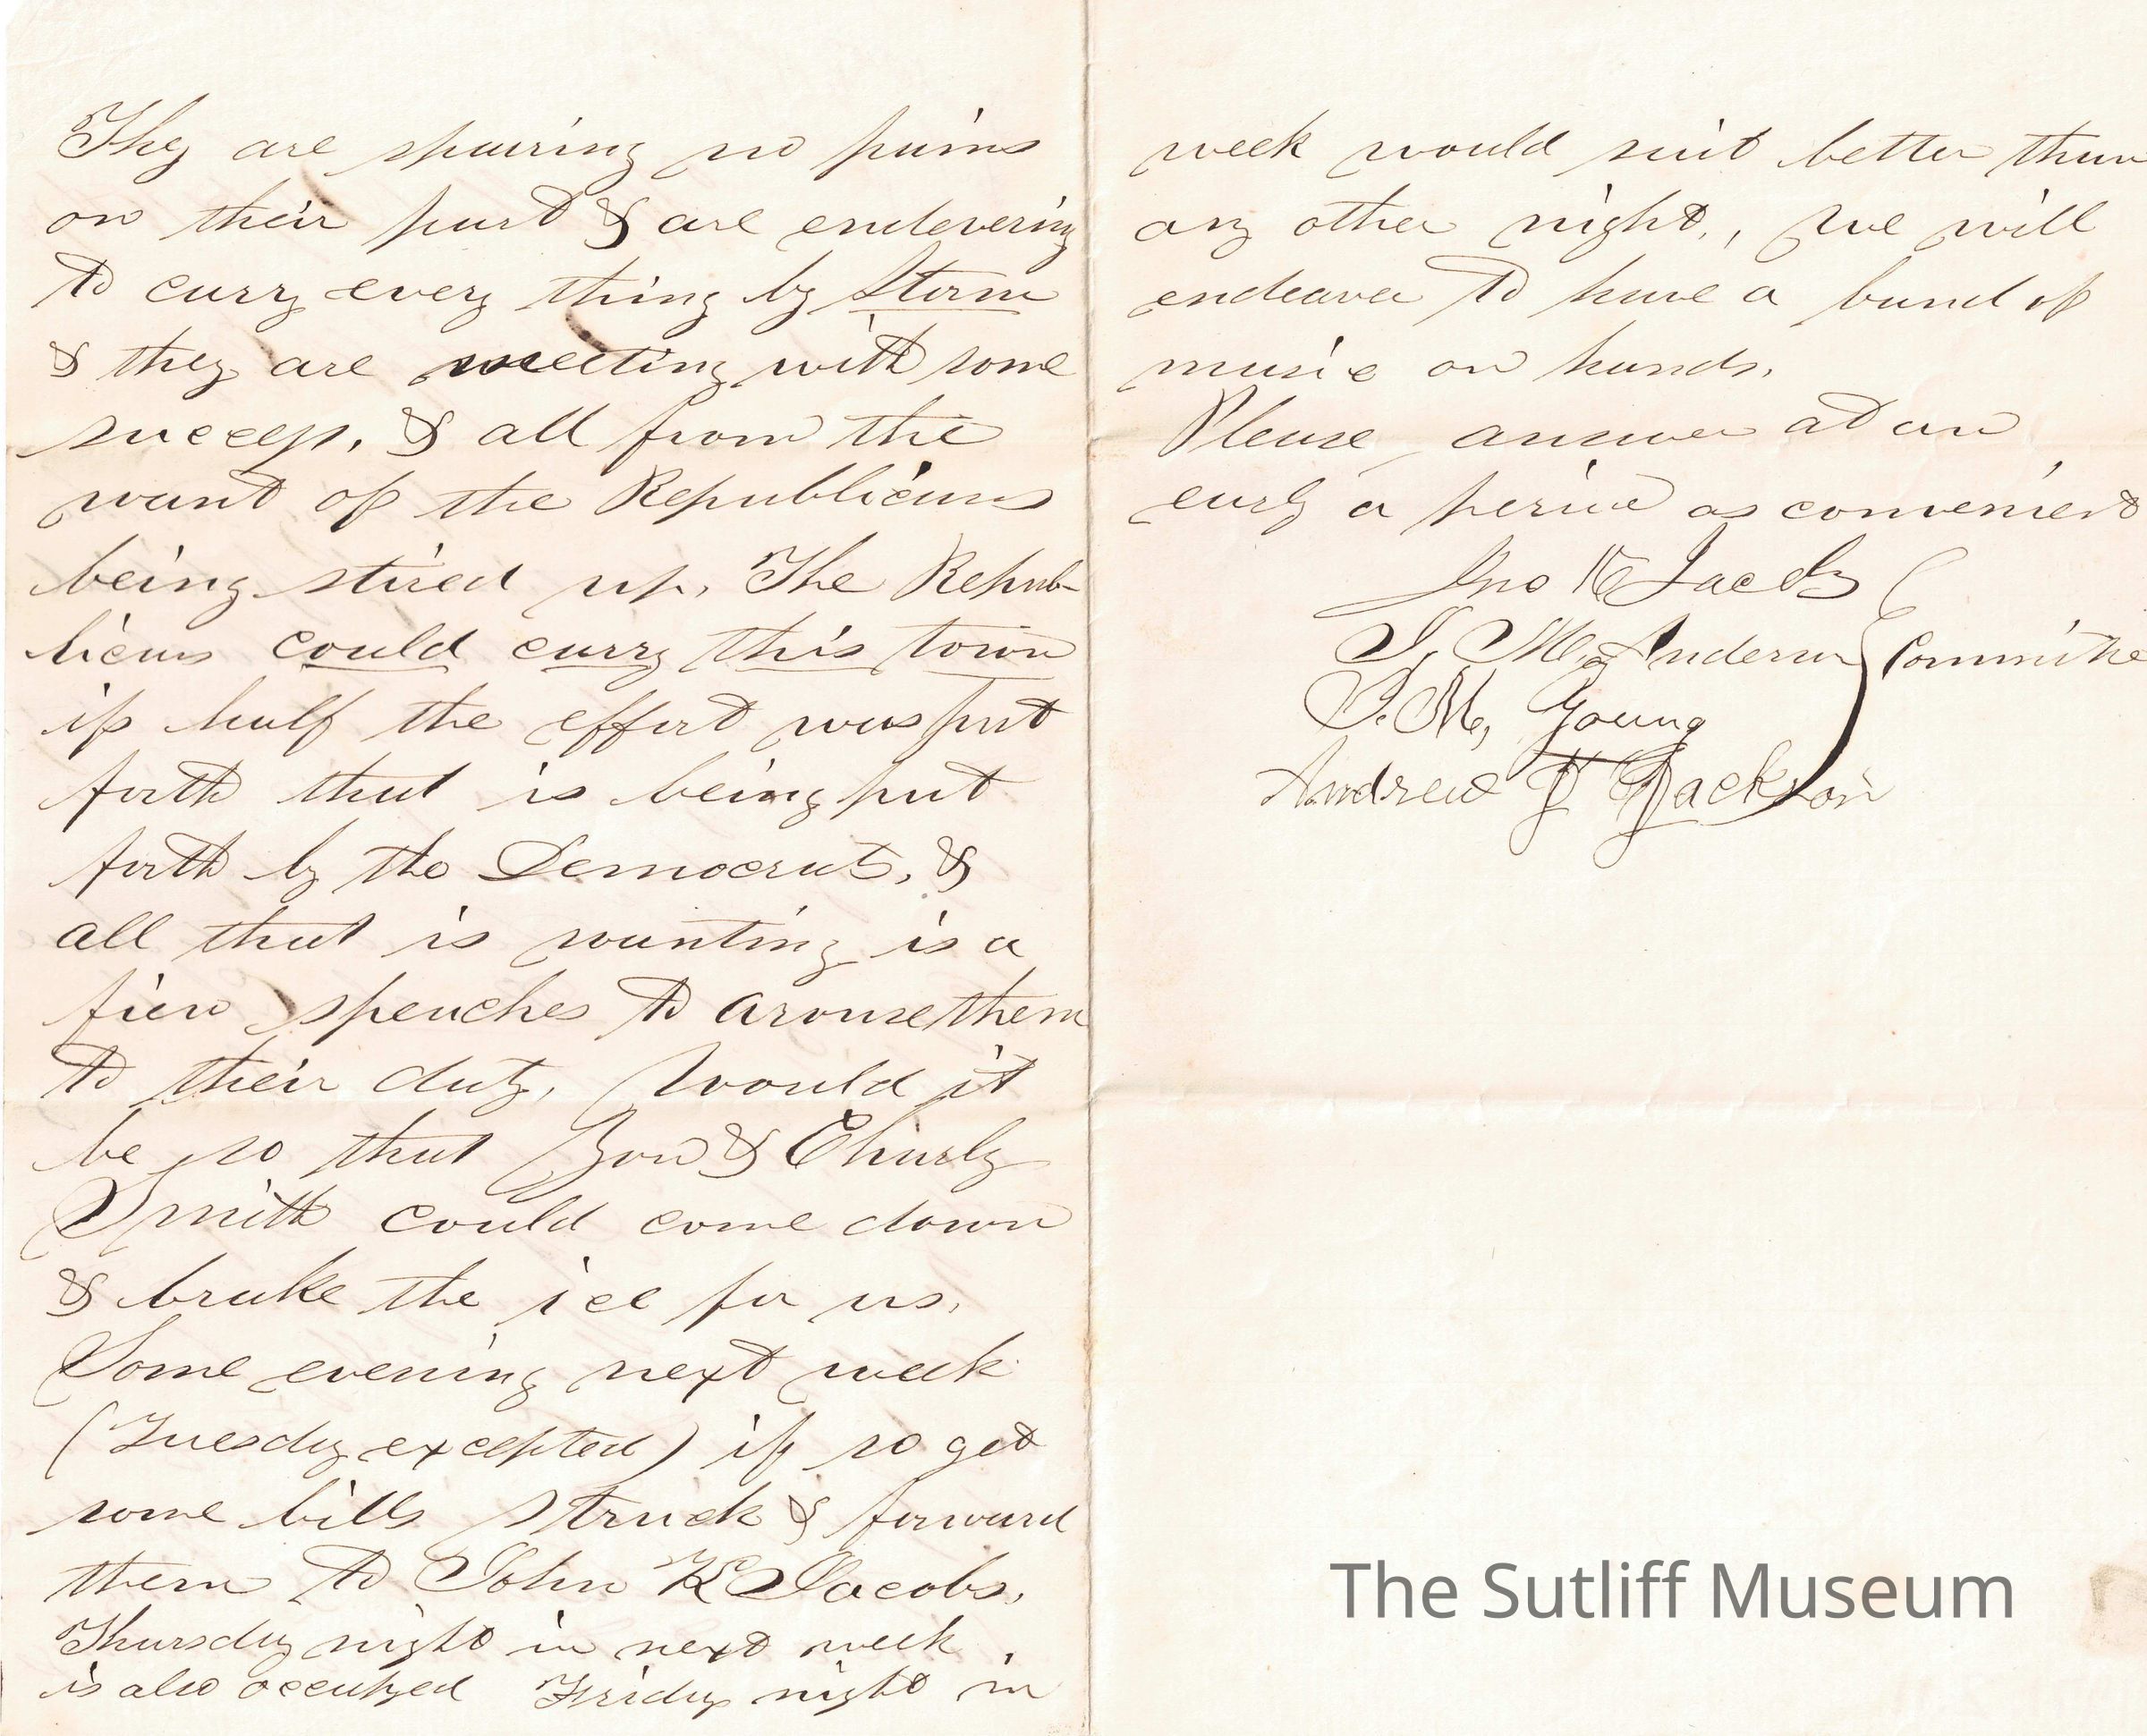 They are sparing no pains
on their part & are endevering
to carry every thing by Storm
& they are meeting with some
success, & all from the
want of the Republicans
being stired up. The Repub-
licans could carry this town
if half the effort was put
forth that is being put
forth by the Democrats, &
all that is wanting is a
fiew speaches to arouse them
to their duty, Would it
be so that You & Charly
Smith could come down
& brake the ice for us.
Some evening next week
(Tuesday excepted) if so get
some bills struck & forward
them to John K Jacobs.
Thursday night in next week
is also occupyed Friday night in
week would suit better than
any other night., We will
endeaver to have a band of
music on hands.
Please answer at an
early a period as convenient
Jno K Jacobs
J. M. Anderson Committee
T. M, Young
Andrew J Jackson
The Sutliff Museum